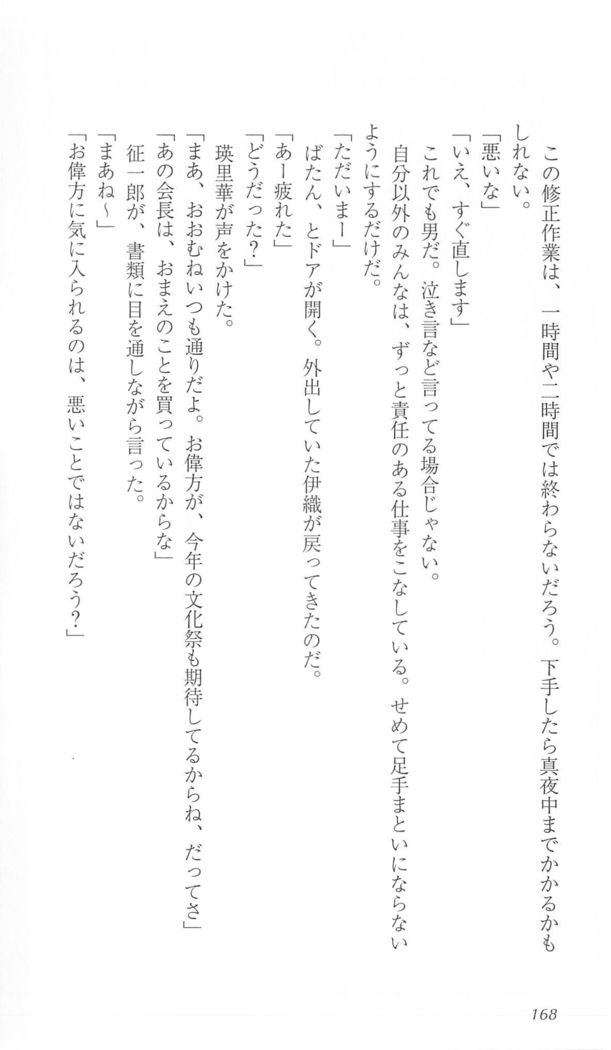 この修正作業は、一時間や二時間では終わらないだろう。下手したら真夜中までかかるかも
しれない。
「悪いな」
「いえ、すぐ直します」
　これでも男だ。泣き言など言ってる場合じゃない。
　自分以外のみんなは、ずっと責任のある仕事をこなしている。せめて足手まといにならない
ようにするだけだ。
「ただいまー」
　ばたん、とドアが開く。外出していた伊織が戻ってきたのだ。
「あー疲れた」
「どうだった？」
　瑛里華が声をかけた。
「まあ、おおむねいつも通りだよ。お偉方が、今年の文化祭も期待してるからね、だってさ」
「あの会長は、おまえのことを買っているからな」
　征一郎が、書類に目を通しながら言った。
「まあね～」
「お偉方に気に入られるのは、悪いことではないだろう？」
168